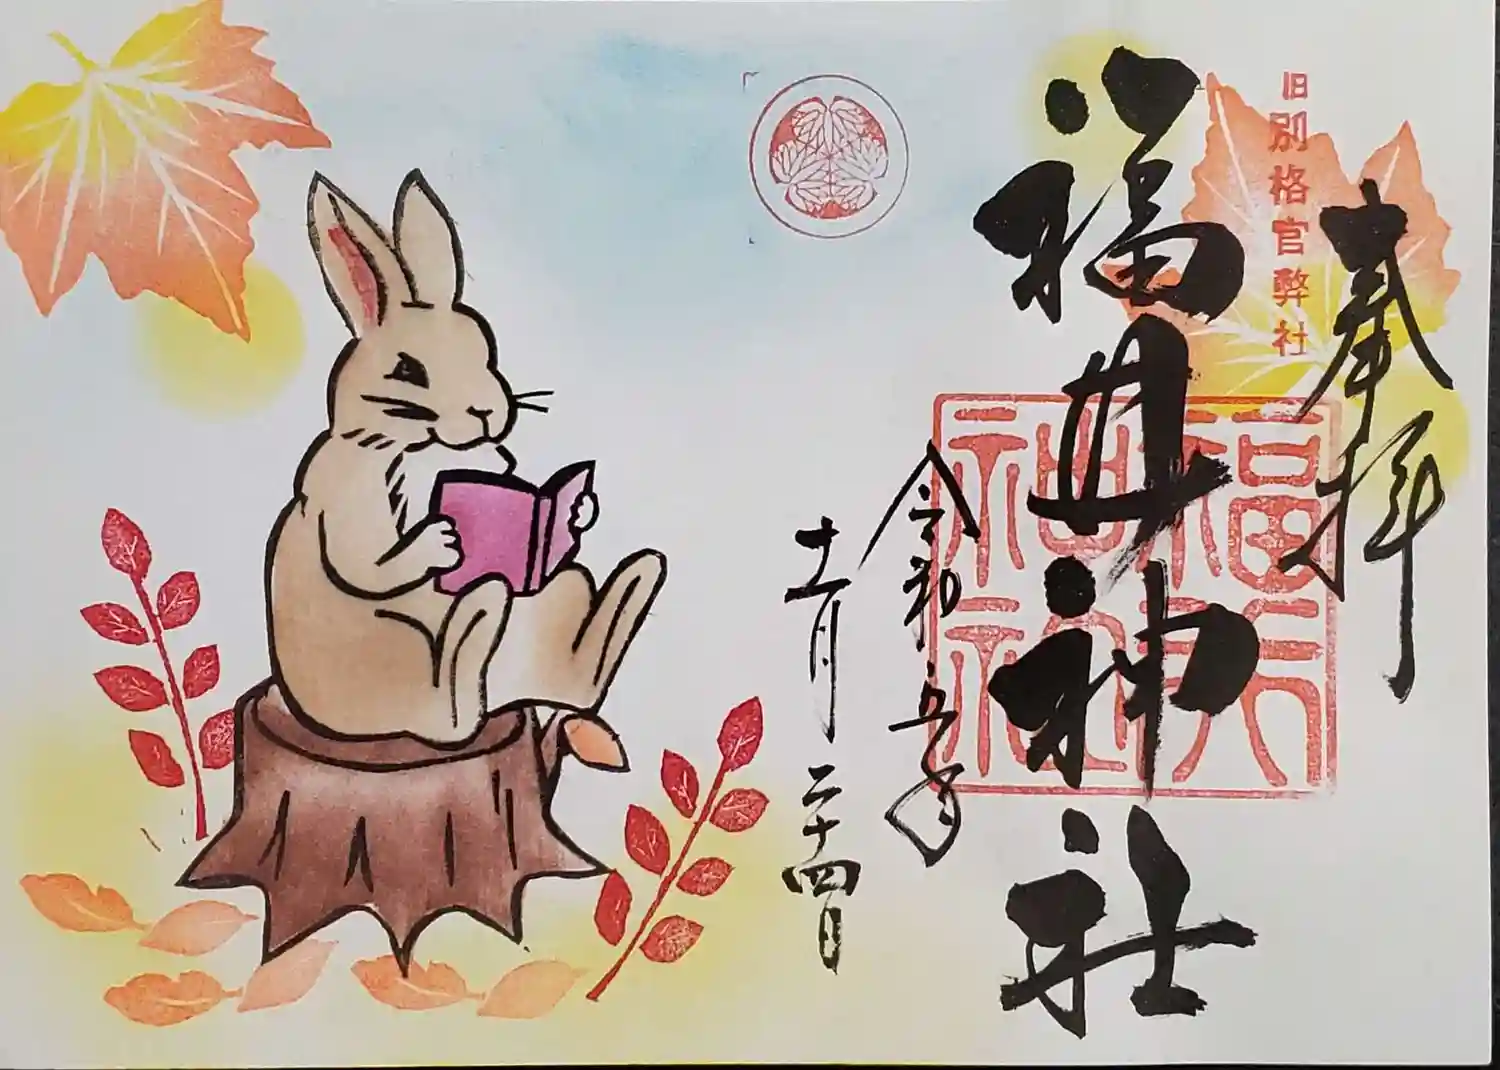 奉拝
旧別格官弊社
福井神社
福井神社
令和五年
十一月二十四日